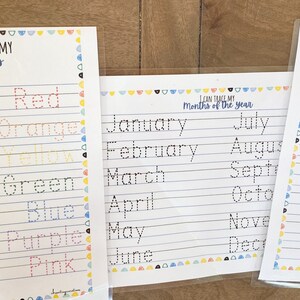 MY
Red
Orange
Yellow
Green
Blue
Purple
Pink
I CAN TRACE MY
Months of the Year
January July
February Augus
March Septe
April Octo
May Nove
June Dece